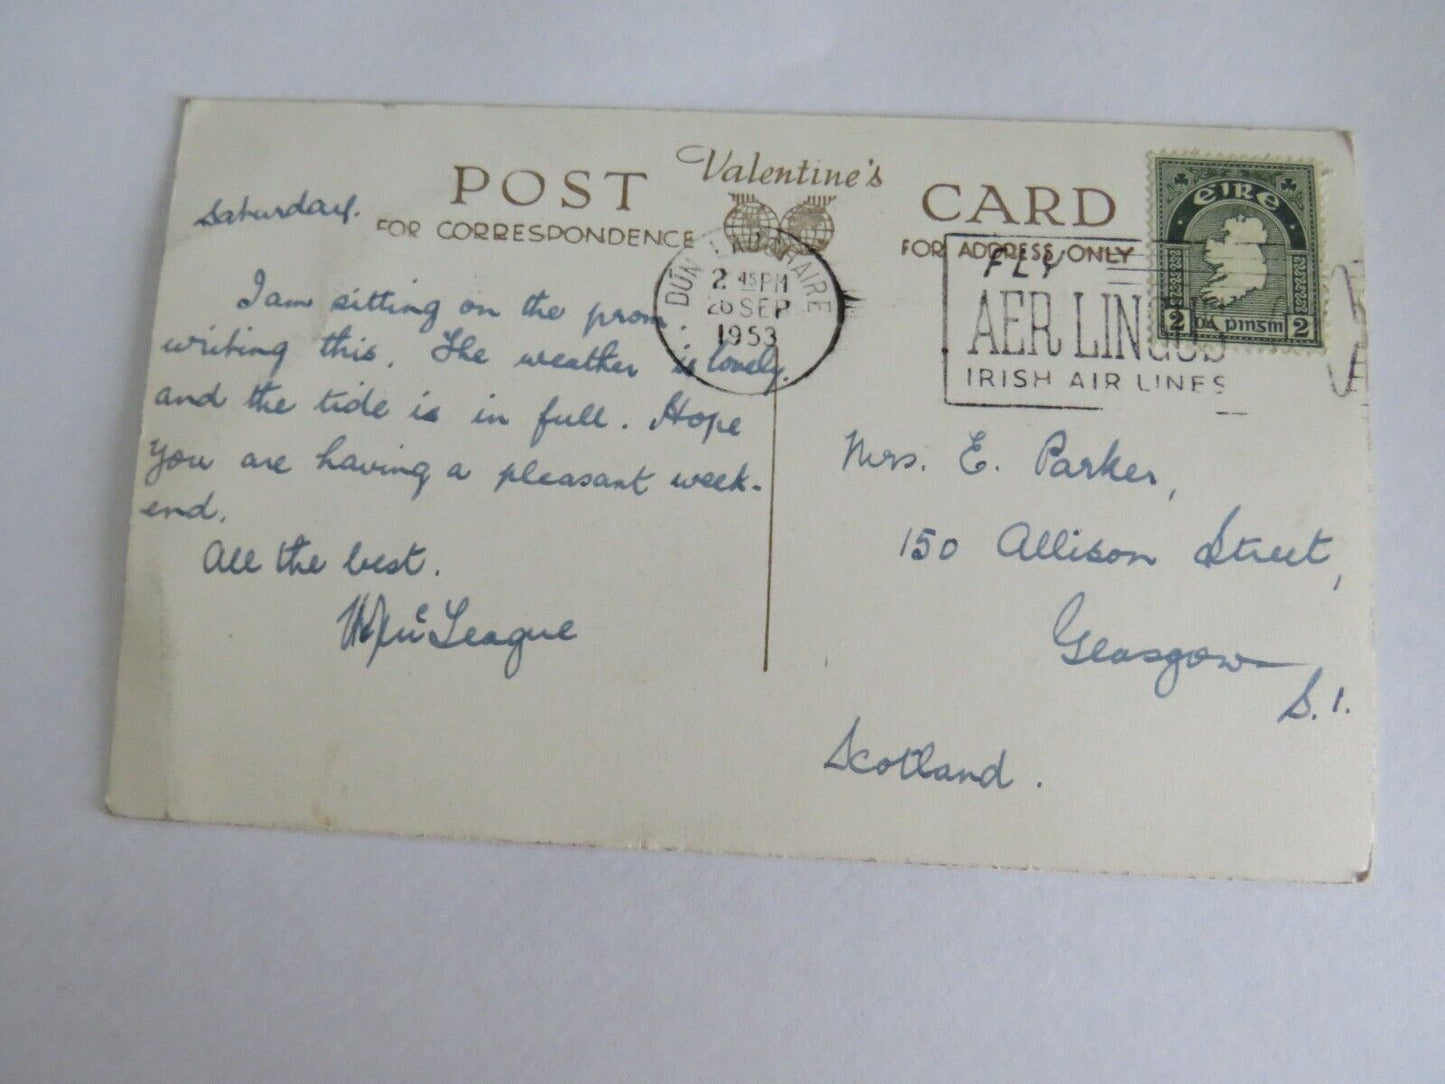 POST
Valentine's
CARD
FOR CORRESPONDENCE
FOR ADDRESS ONLY
ÉIRE
2 DÁ PINSIN 2
DÚN LAOGHAIRE
2 45PM
26 SEP
1953
FLY
AER LINGUS
IRISH AIR LINES
Saturday.
I am sitting on the prom.
writing this. The weather is lovely.
and the tide is in full. Hope
you are having a pleasant week-
end.
All the best.
McLeague
Mrs. E. Parker,
150 Allison Street,
Glasgow
S.1.
Scotland.